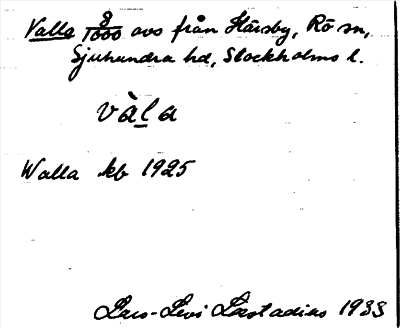 Valla 8/1000 avs från Härsby, Rö sn,
Sjuhundra hd, Stockholms l.
vàl̲a
Walla kb 1925
Lars-Levi Læstadius 1933